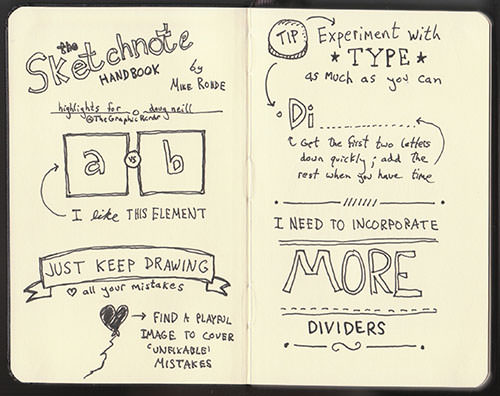 the
Sketchnote
HANDBOOK
by
MIKE ROHDE
highlights for doug neill
@TheGraphicRecdr
a vs b
I like THIS ELEMENT
JUST KEEP DRAWING
all your mistakes
→ FIND A PLAYFUL
IMAGE TO COVER
"UNFIXABLE"
MISTAKES
TIP Experiment with
★ TYPE ★
as much as you can
Di
Get the first two letters
down quickly; add the
rest when you have time
I NEED TO INCORPORATE
MORE
DIVIDERS